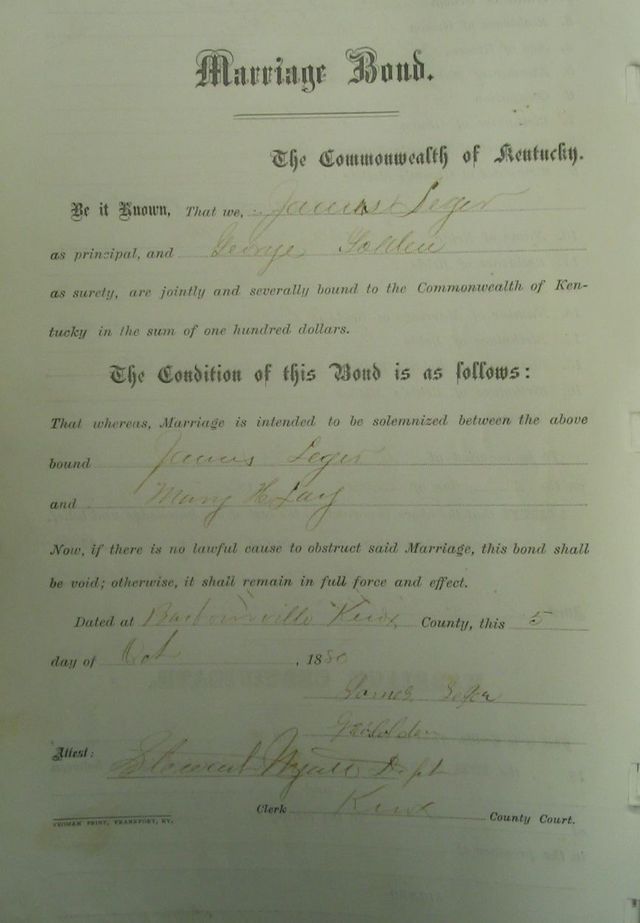 Marriage Bond.
The Commonwealth of Kentucky.
Be it Known, That we, James Leger
as principal, and George Golden
as surety, are jointly and severally bound to the Commonwealth of Ken-
tucky in the sum of one hundred dollars.
The Condition of this Bond is as follows:
That whereas, Marriage is intended to be solemnized between the above
bound James Leger
and Mary H Lay
Now, if there is no lawful cause to obstruct said Marriage, this bond shall
be void; otherwise, it shall remain in full force and effect.
Dated at Barbourville Knox County, this 5
day of Oct, 1880
James Leger
G Golden
Attest: Stewart Wyatt Dept
Clerk Knox County Court.
YEOMAN PRINT, FRANKFORT, KY.